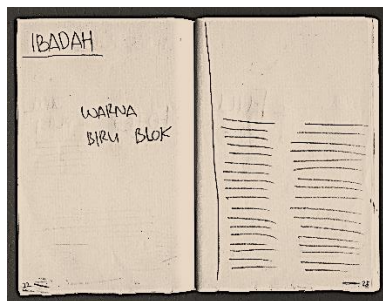 IBADAH
WARNA
BIRU BLOK
22
23